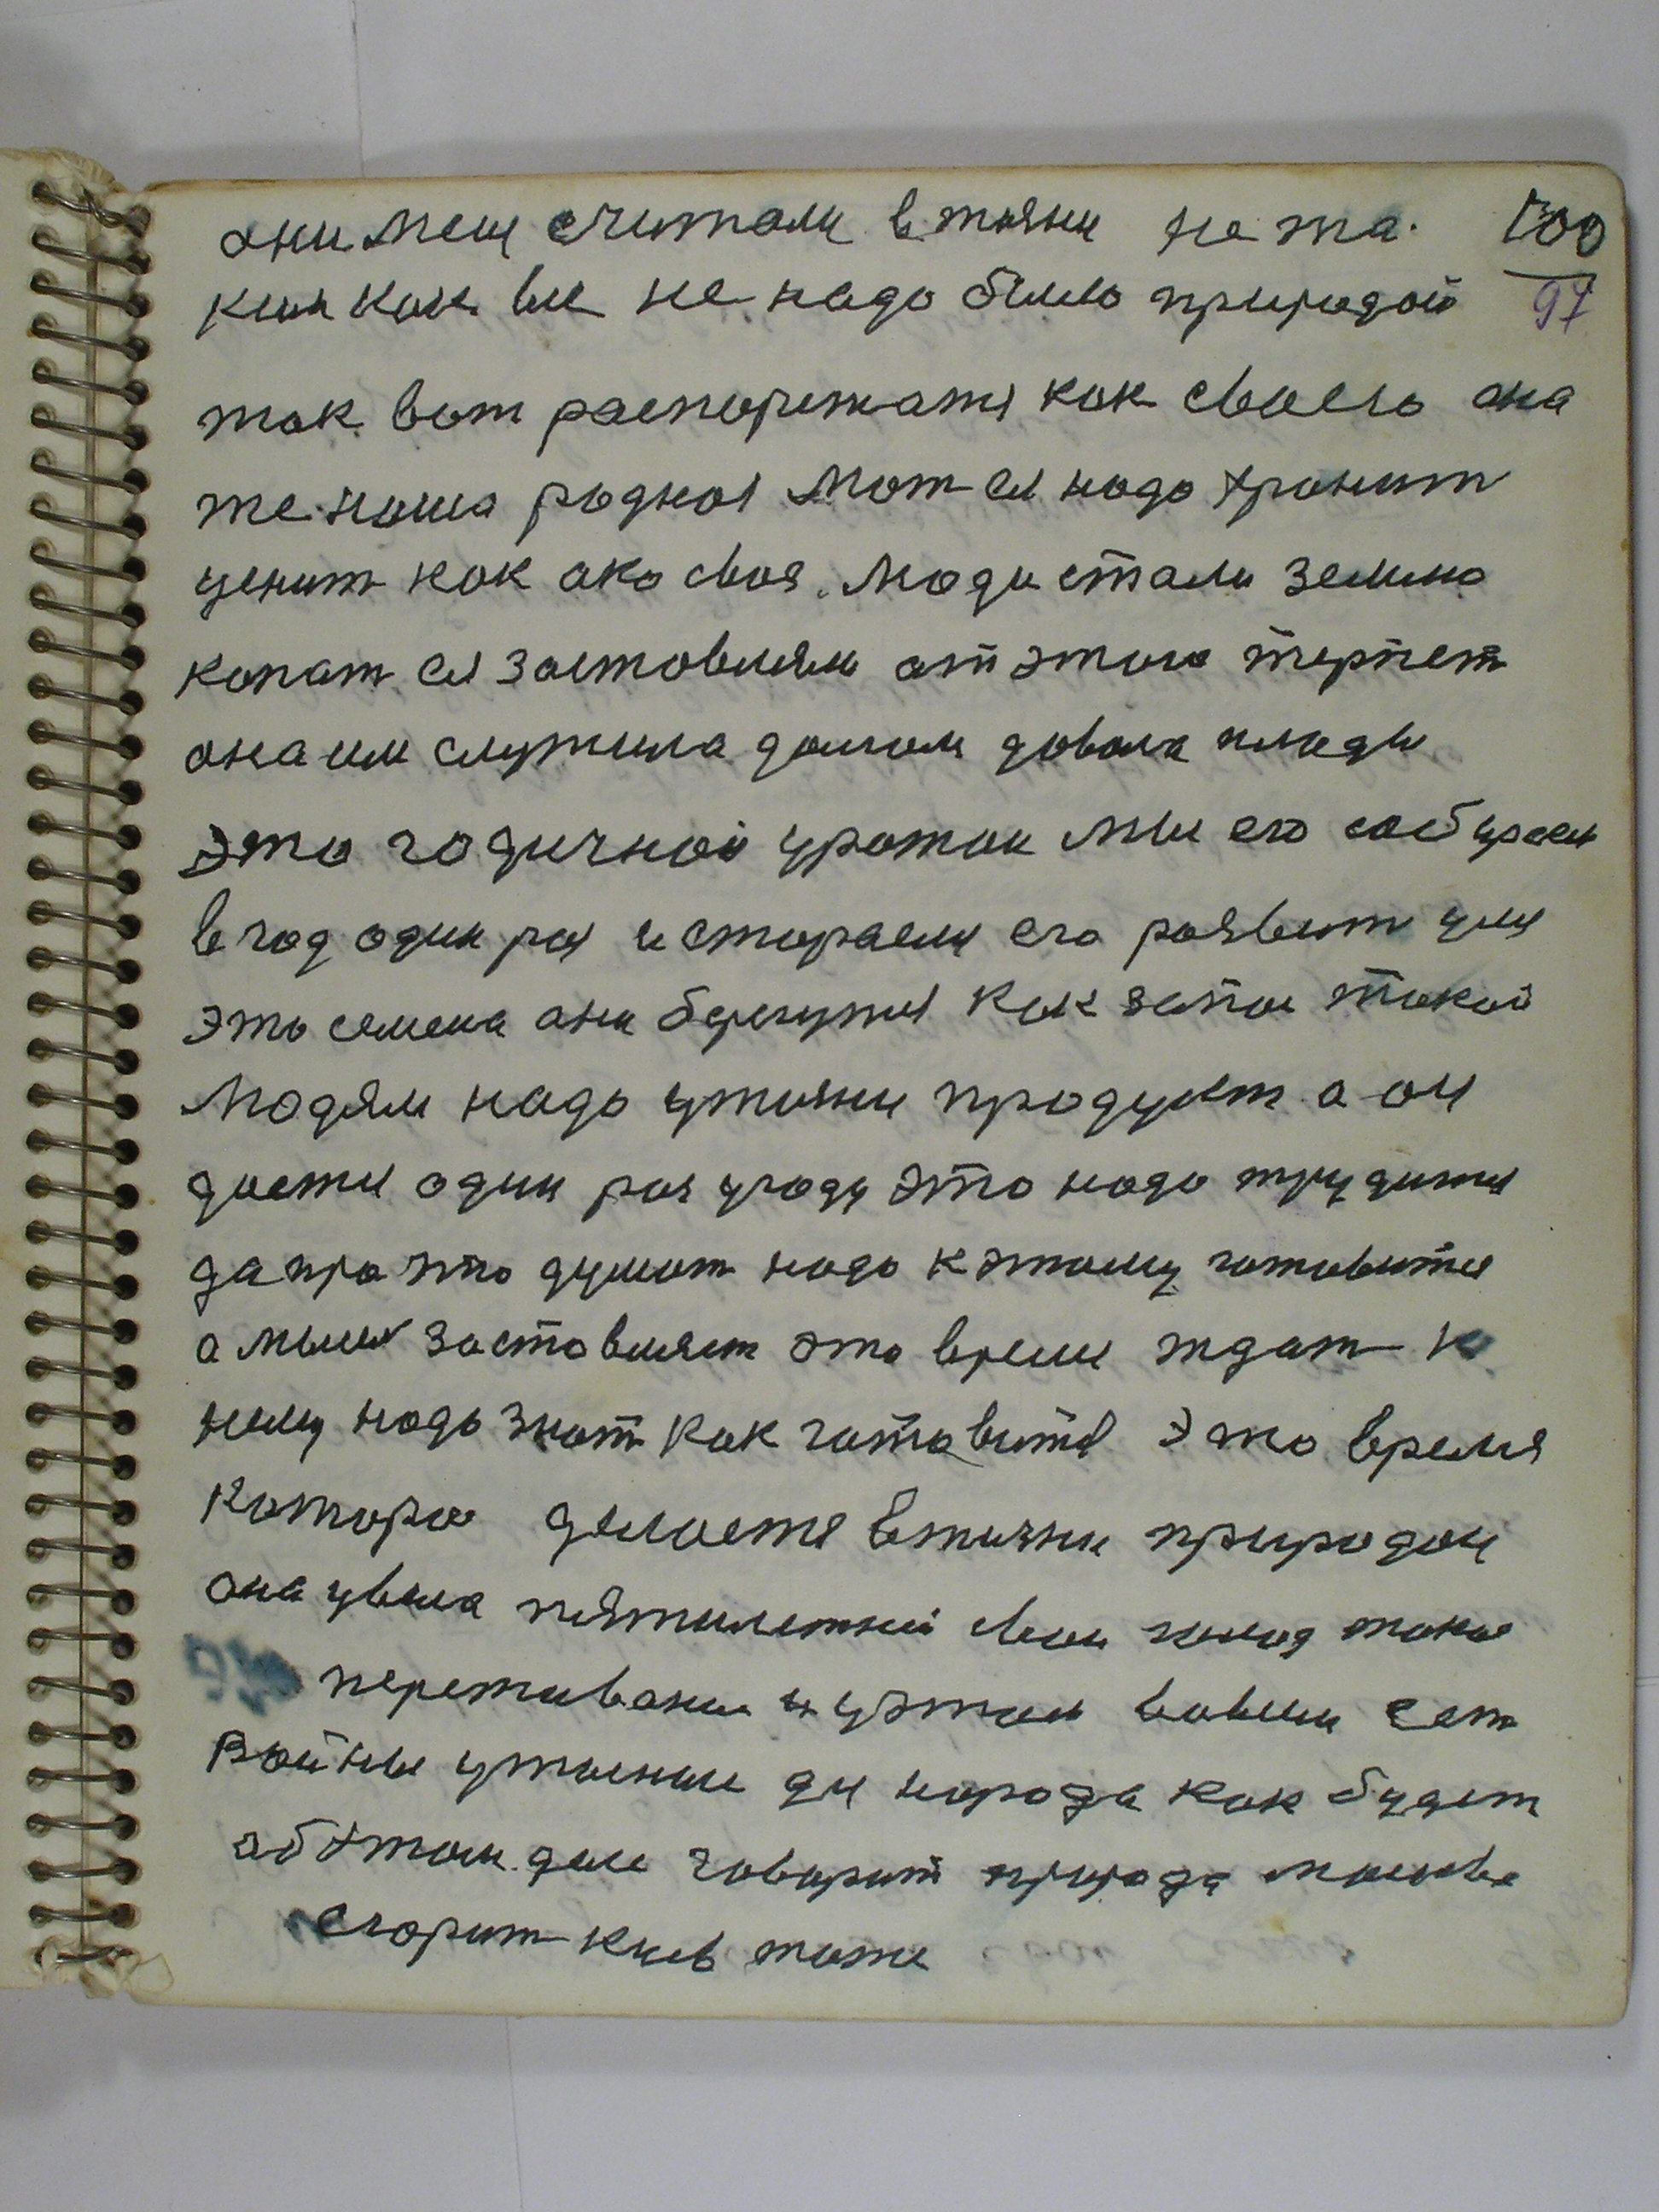 они меня считали в жизни не та- 100
ким как все не надо было природой 97
так вот распоряжатя как своею она
же наша родная мать ея надо хранит
ценит как око своя. Люди стали землю
копат ея заставляли от этого терпет
она им служила домом давала плоды
Это годичной урожаи мы его собираем
в год один раз и стараемся его развит
это семена они берегутся как запас такой
Людям надо у жизни продукт а он
дается один раз у году это надо трудится
да про это думат надо к этому готовится
а мысля заставляет это время ждат к
нему надо знат как готовится Это время
которое делается в жизни природой
она увела пятилетний свой голод такие
переживание и у этом
войны у жизни для народа как будет
об этом деле говорит природа Москва
сгорит Киев тоже